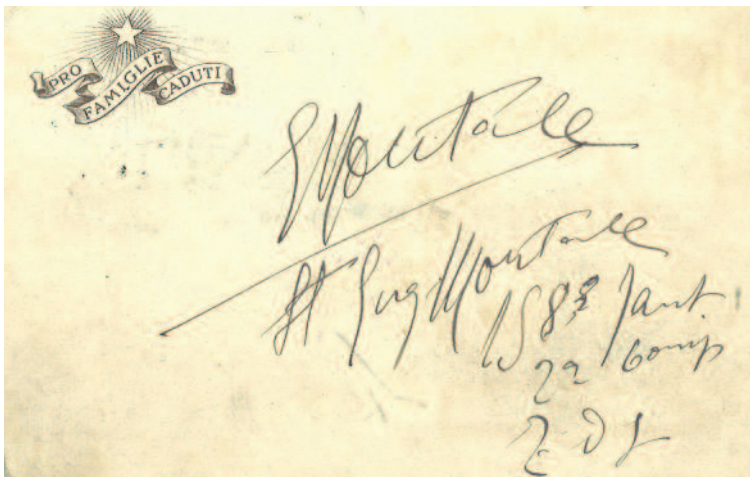 PRO FAMIGLIE CADUTI
EMontale
St Eug Montale
158º Fant
2ª Comp
Z d g